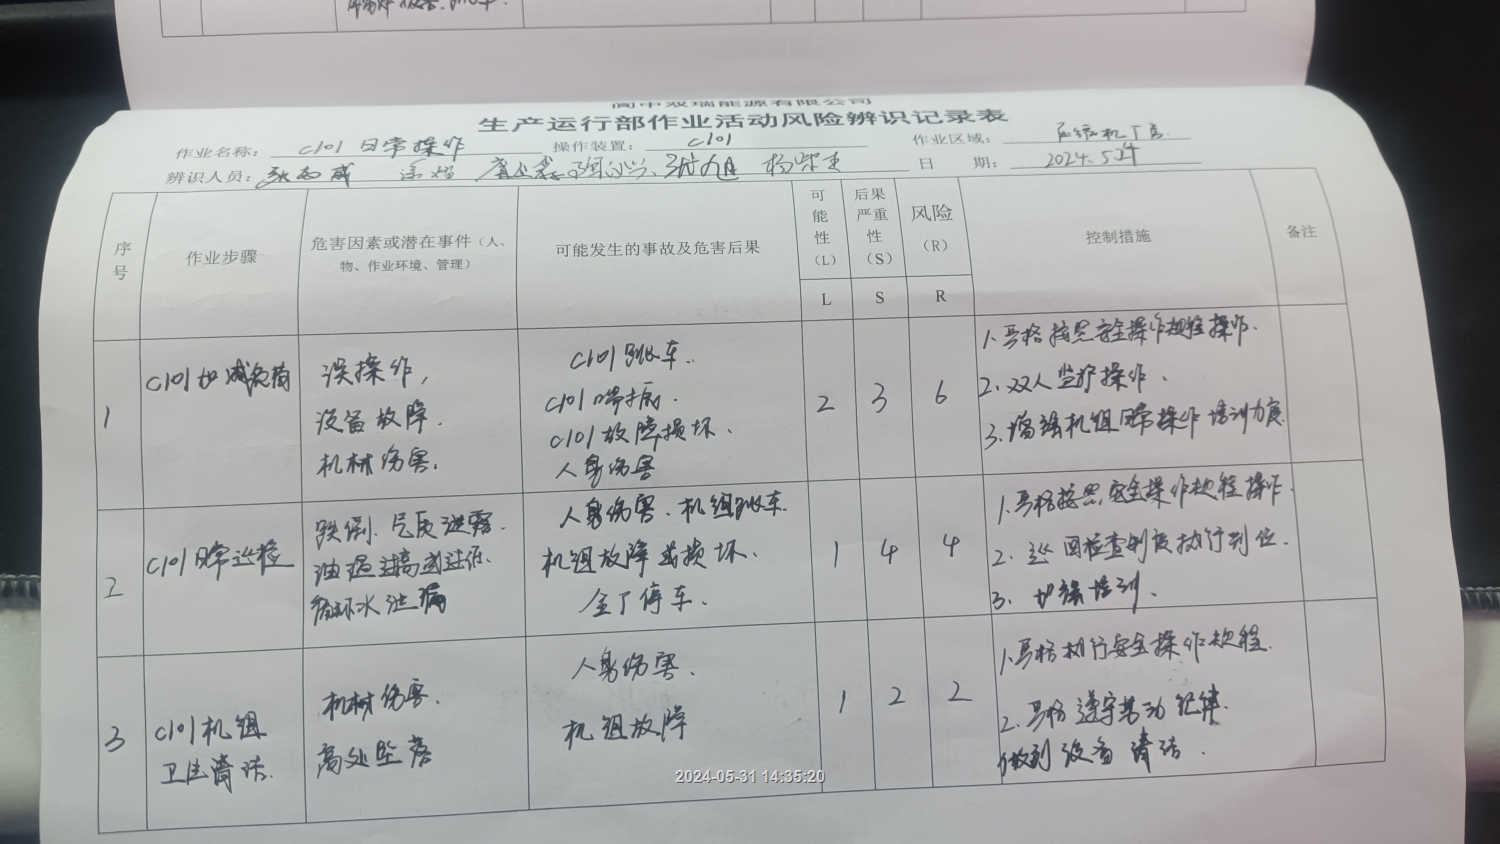 阆中双瑞能源有限公司
生产运行部作业活动风险辨识记录表
作业名称： C101 日常操作 操作装置： C101 作业区域： 压缩机厂房
辨识人员： 日 期： 2024.5.24
序号 作业步骤 危害因素或潜在事件（人、物、作业环境、管理） 可能发生的事故及危害后果 可能性（L） 后果严重性（S） 风险（R） 控制措施 备注
L S R
1
C101加减负荷
误操作，
设备故障.
机械伤害.
C101跳车.
C101喘振.
C101故障损坏.
人身伤害
2 3 6
1.严格按照安全操作规程操作.
2.双人监护操作.
3.增强机组日常操作培训力度
2
C101日常巡检
跌倒、气质泄露.
油温过高或过低.
循环水泄漏
人身伤害.机组跳车.
机组故障或损坏.
全厂停车.
1 4 4
1.严格按照安全操作规程操作.
2.巡回检查制度执行到位.
3.加强培训.
3
C101机组
卫生清洁.
机械伤害.
高处坠落
人身伤害.
机组故障
1 2 2
1.严格执行安全操作规程.
2.严格遵守劳动纪律.
做到设备清洁.
2024-05-31 14:35:20